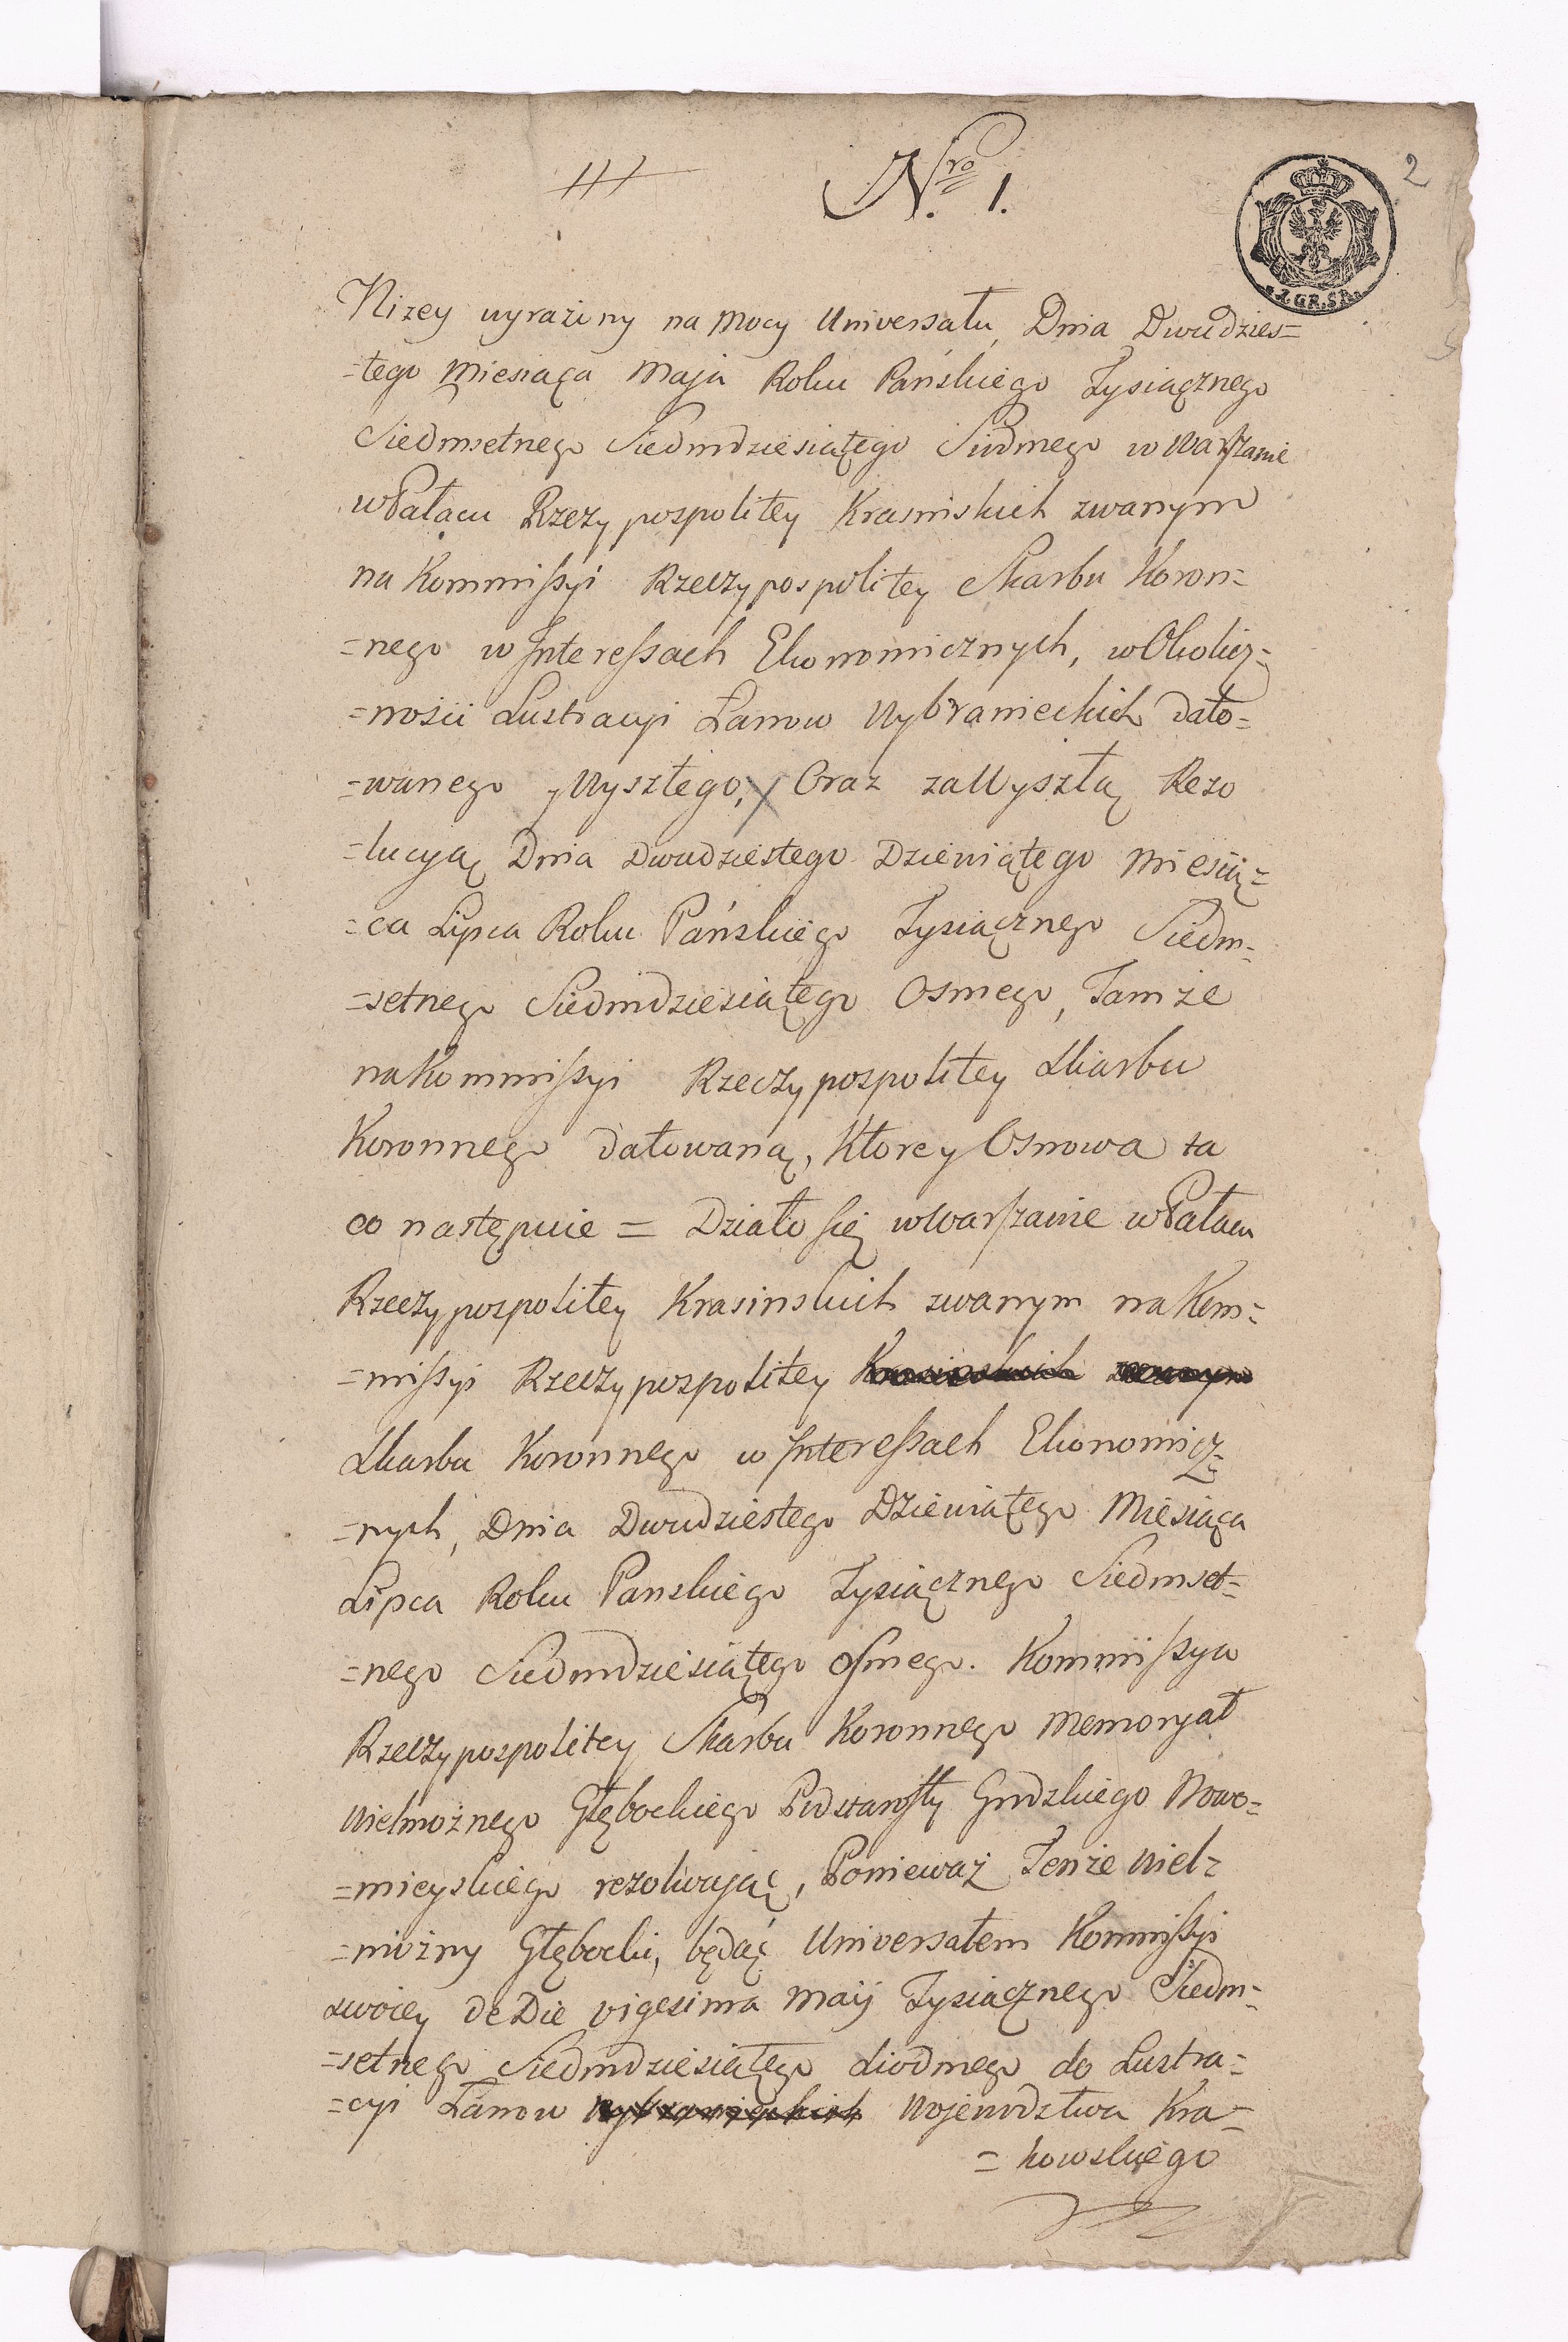 Nro 1.
2
1. GR. SR.
Niżey wyrażny na mocy Uniwersału, Dnia Dwudzies=
=tego Miesiąca Maja Roku Pańskiego Tysiącznego
Siedmsetnego Siedmdziesiątego Siodmego w Warszawie
w Pałacu Rzeczypospolitey Krasinskich zwanym
na Kommissyi Rzeczypospolitey Skarbu Koron=
=nego w Interessach Ekonomicznych, w Okolicz=
=nosci Lustracyi Łanow Wybranieckich dato=
=wanego y Wyszłego, Oraz za Wyszłą Rezo
=lucyą Dnia Dwudziestego Dziewiątego Miesią=
=ca Lipca Roku Pańskiego Tysiącznego Siedm=
=setnego Siedmdziesiątego Osmego, Tamże
na Kommissyi Rzeczypospolitey Skarbu
Koronnego datowaną, Ktorey Osnowa ta
co następuie = Działo się w Warszawie w Pałacu
Rzeczypospolitey Krasinskich zwanym na Kom=
=missyi Rzeczypospolitey Krasinskich zwanym
Skarbu Koronnego w Interessach Ekonomicz=
=nych, Dnia Dwudziestego Dziewiątego Miesiąca
Lipca Roku Panskiego Tysiącznego Siedmset=
=nego Siedmdziesiątego Osmego. Kommissya
Rzeczypospolitey Skarbu Koronnego Memoryał
Wielmożnego Głębockiego Podstarosty Grodzkiego Nowo=
=mieyskiego rezolwując, Ponieważ Tenże Wiel=
=możny Głębocki, będąc Uniwersałem Kommissyi
swoiey de Die vigesima Maij Tysiącznego Siedm=
=setnego Siedmdziesiątego siodmego do Lustra=
=cyi Łanow Wybranieckich Wojewodztwa Kra=
=kowskiego